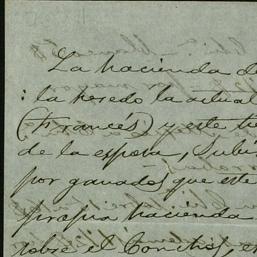 La hacienda de
: la heredo la actual
(Francés) y este tu
de la esposa, Subi
por ganados que este
propia hacienda
sobre el Conchos, es